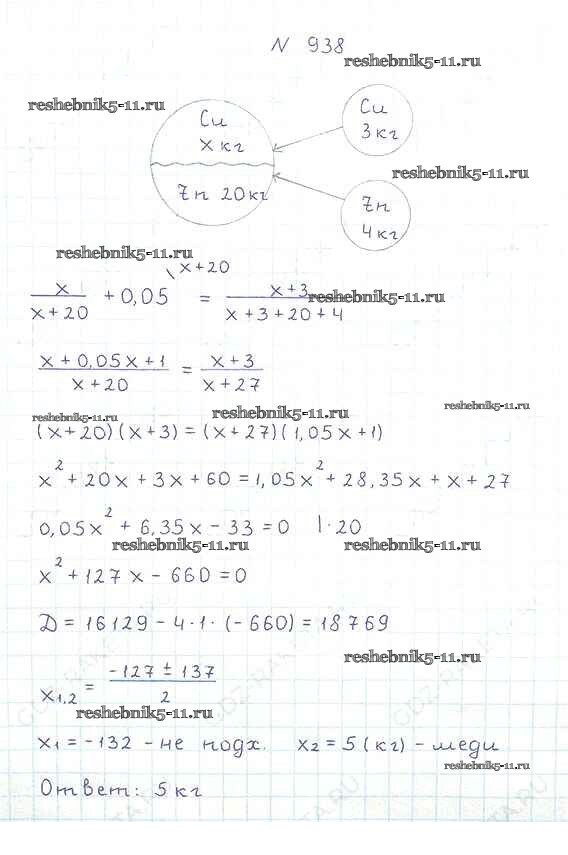 N 938
reshebnik5-11.ru
reshebnik5-11.ru
Cu
x кг
Cu
3кг
reshebnik5-11.ru
Zn 20кг
Zn
4кг
reshebnik5-11.ru
x/(x+20) + 0,05 \x+20 = (x+3)/(x+3+20+4)
reshebnik5-11.ru
(x+0,05x+1)/(x+20) = (x+3)/(x+27)
reshebnik5-11.ru
reshebnik5-11.ru
reshebnik5-11.ru
(x+20)(x+3)=(x+27)(1,05x+1)
x²+20x+3x+60=1,05x²+28,35x+x+27
0,05x²+6,35x-33=0 |·20
reshebnik5-11.ru
reshebnik5-11.ru
x²+127x-660=0
D=16129-4·1·(-660)=18769
reshebnik5-11.ru
x1,2 = (-127±137)/2
reshebnik5-11.ru
x1=-132 - не подх. x2=5(кг) - меди
reshebnik5-11.ru
Ответ: 5кг